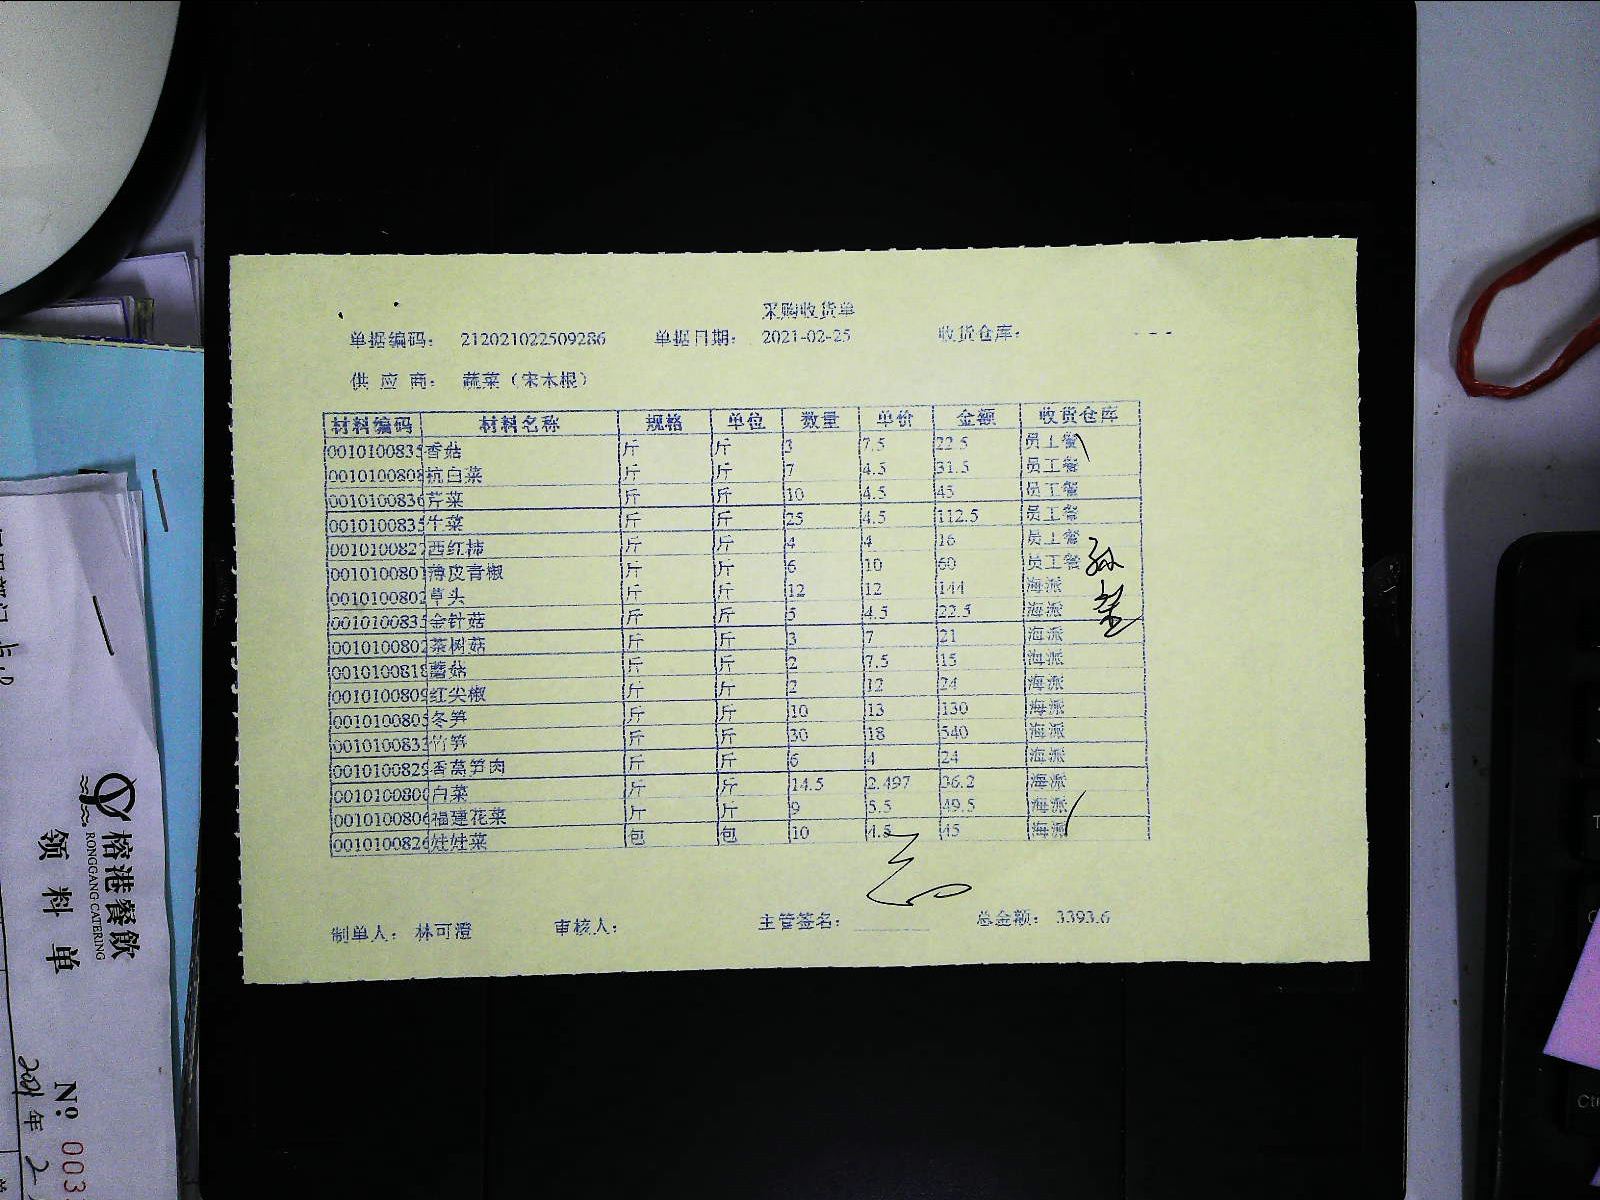 采购收货单
单据编码： 212021022509286 单据日期： 2021-02-25 收货仓库： - - -
供 应 商： 蔬菜（宋木根）
材料编码 材料名称 规格 单位 数量 单价 金额 收货仓库
0010100835 香菇 斤 斤 3 7.5 22.5 员工餐
0010100808 杭白菜 斤 斤 7 4.5 31.5 员工餐
0010100836 芹菜 斤 斤 10 4.5 45 员工餐
0010100835 生菜 斤 斤 25 4.5 112.5 员工餐
0010100827 西红柿 斤 斤 4 4 16 员工餐
0010100801 薄皮青椒 斤 斤 6 10 60 员工餐
0010100802 草头 斤 斤 12 12 144 海派
0010100835 金针菇 斤 斤 5 4.5 22.5 海派
0010100802 茶树菇 斤 斤 3 7 21 海派
0010100818 蘑菇 斤 斤 2 7.5 15 海派
0010100809 红尖椒 斤 斤 2 12 24 海派
0010100805 冬笋 斤 斤 10 13 130 海派
0010100833 竹笋 斤 斤 30 18 540 海派
0010100829 香莴笋肉 斤 斤 6 4 24 海派
0010100800 白菜 斤 斤 14.5 2.497 36.2 海派
0010100806 福建花菜 斤 斤 9 5.5 49.5 海派
0010100826 娃娃菜 包 包 10 4.5 45 海派
制单人： 林可澄 审核人： 主管签名： 总金额： 3393.6
榕港餐飲
RONGGANG CATERING
领料单
№ 003
2021年2